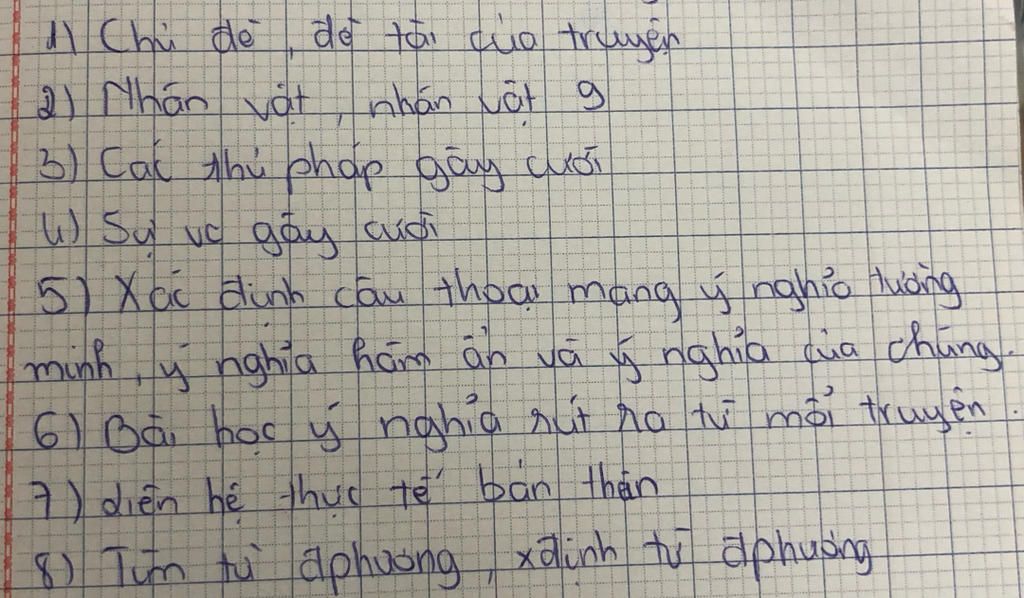 1) Chủ đề, đề tài của truyện
2) Nhân vật, nhân vật g
3) Các thủ pháp gây cười
4) Sự vc gây cười
5) Xác định câu thoại mang ý nghĩa tường
minh, ý nghĩa hàm ẩn và ý nghĩa của chúng.
6) Bài học ý nghĩa rút ra từ mỗi truyện.
7) liên hệ thực tế bản thân
8) Tìm từ đphương, xđịnh từ đphương